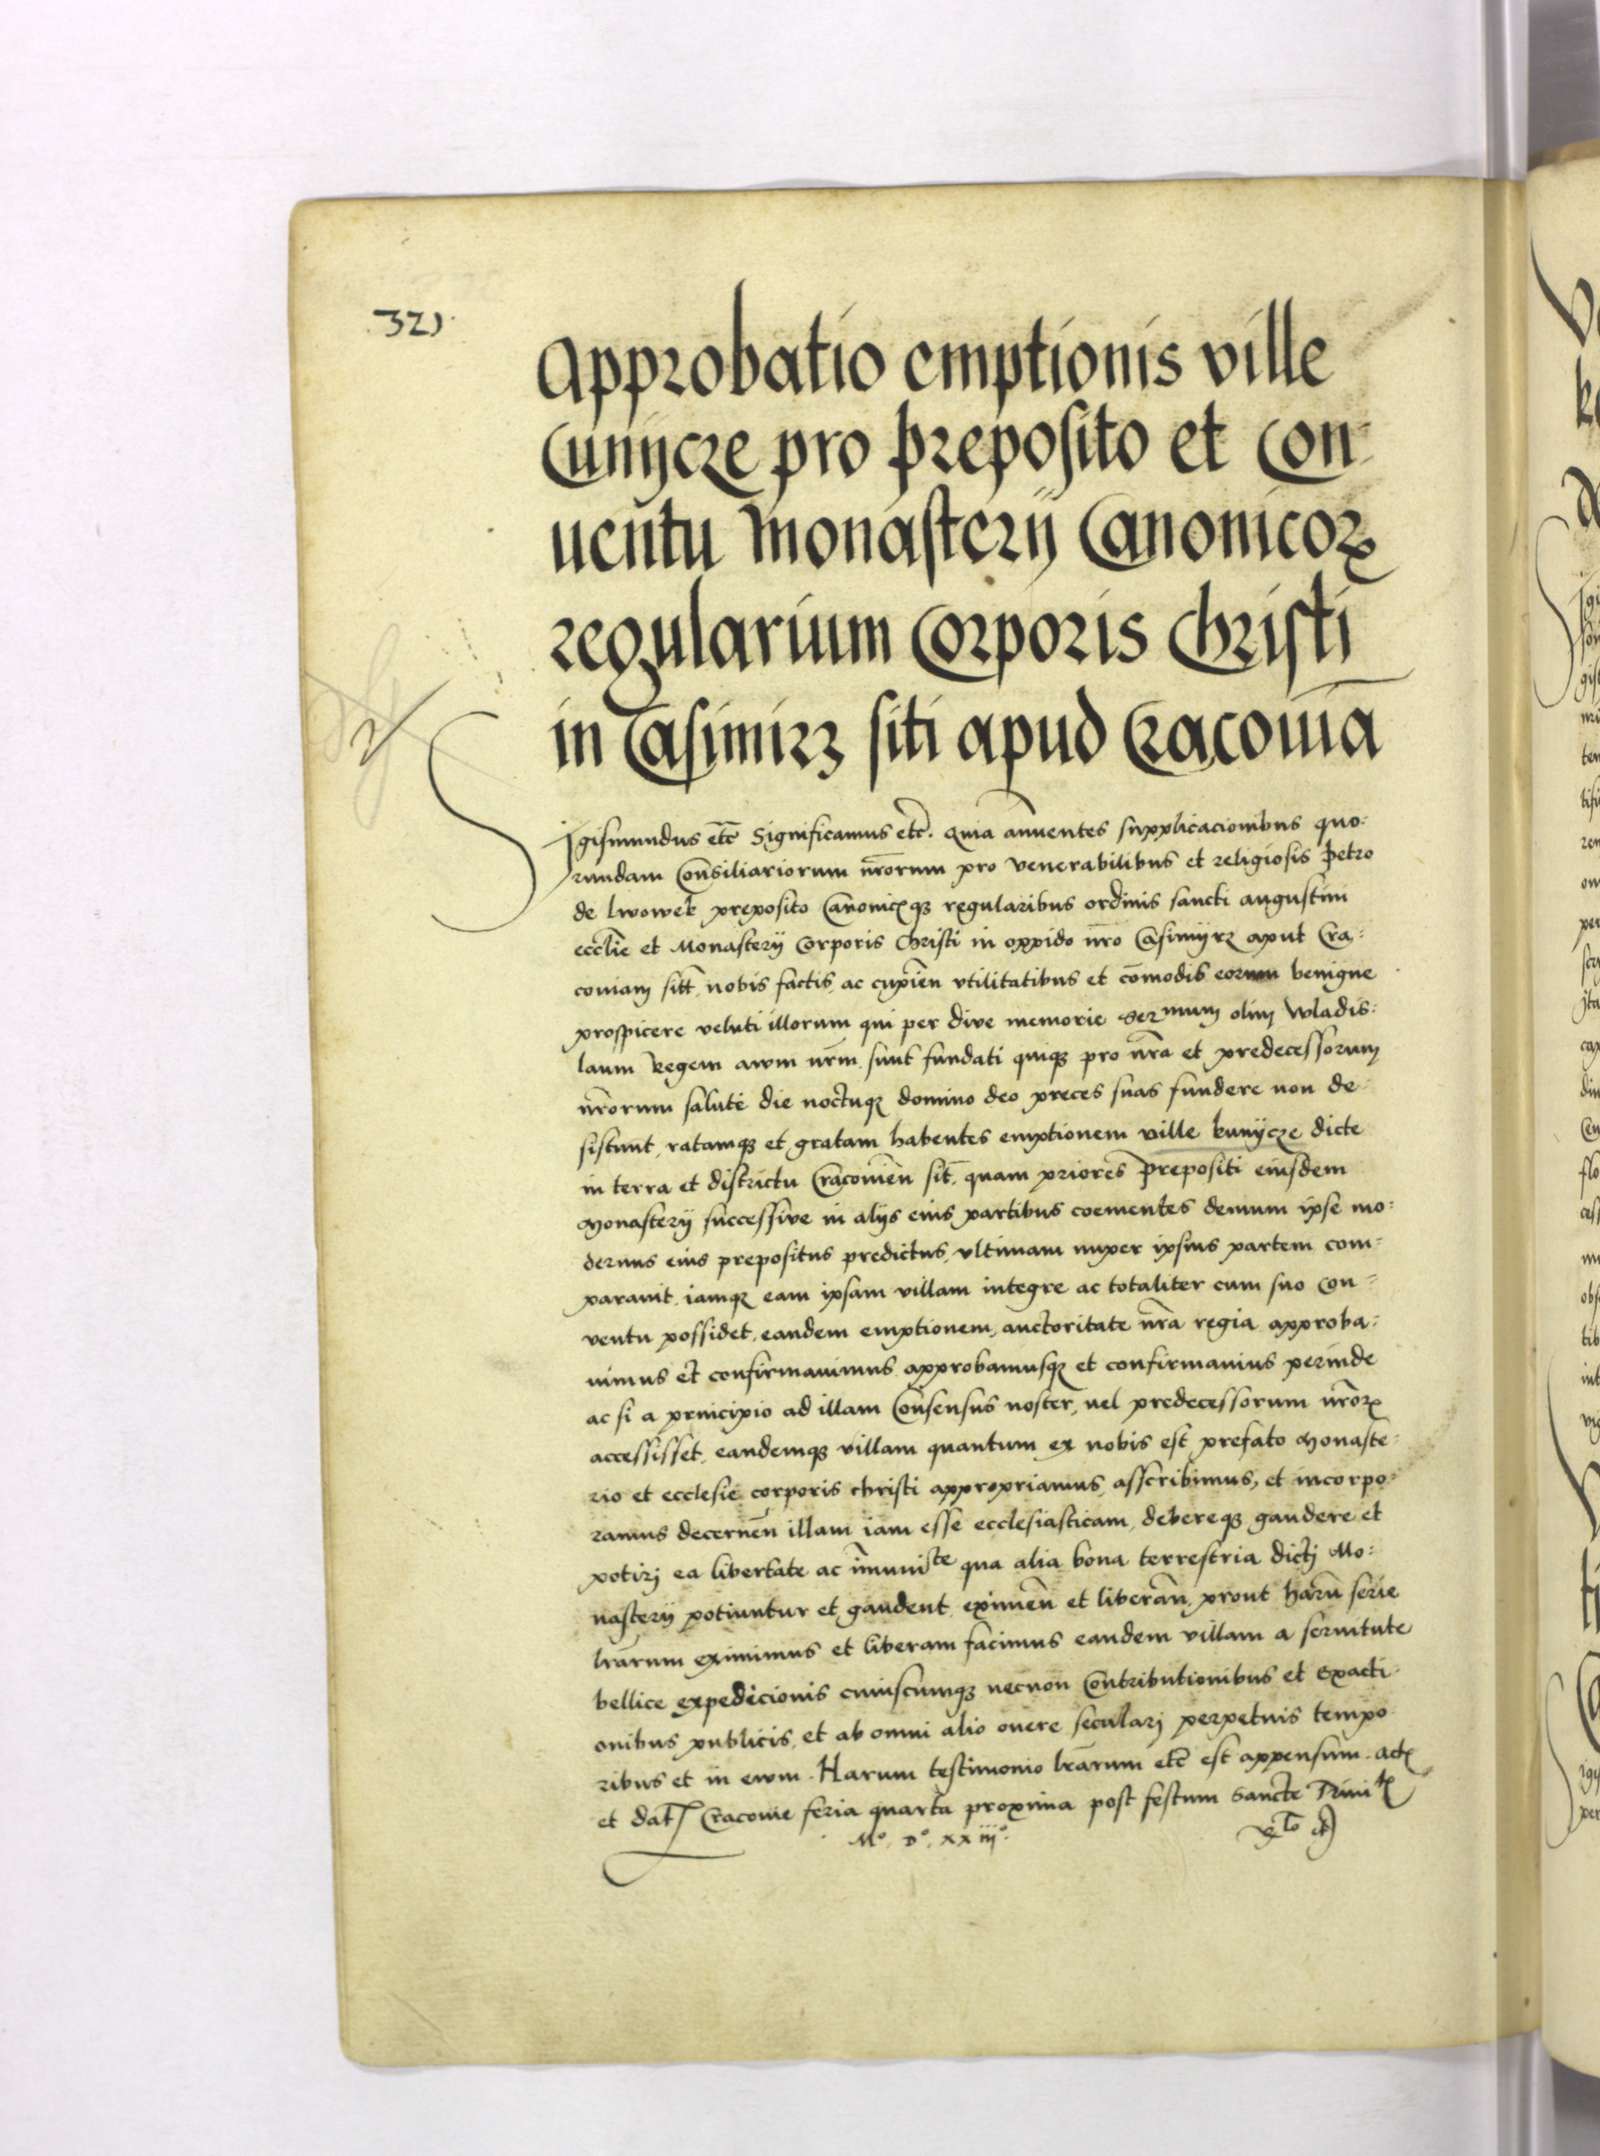 321
Approbatio emptionis ville
Cunijcze pro preposito et Con-
uentu Monasterij Canonicoꝝ
regularium Corporis Christi
in Casimirz siti apud Cracouiā
Sigismundus etc̄ Significamus etc̄. Quia annuentes supplicacionibus quo-
rundam Consiliariorum nr̄orum pro venerabilibus et religiosis Petro
de Lwowek preposito Canonicisqꝫ regularibus ordinis sancti augustini
eccl̄ie et Monasterij Corporis Christi in oppido nr̄o Casimijrz aput Cra-
couiam sitt̄, nobis factis, ac cupien̄ vtilitatibus et cōmodis eorum benigne
prospicere veluti illorum qui per diue memorie Ser mum olim Wladis-
laum Regem auum nr̄m sunt fundati quiqꝫ pro nr̄a et predecessorum
nr̄orum salute die noctuqꝫ domino deo preces suas fundere non de-
sistunt, ratamqꝫ et gratam habentes emptionem ville kunijcze dicte
in terra et districtu Cracouien̄ sit̄, quam priores prepositi eiusdem
Monasterij successiue in alijs eius partibus coementes demum ipse mo-
dernus eius prepositus predictus, vltimam nuper ipsius partem com-
parauit, iamqꝫ eam ipsam villam integre ac totaliter cum suo Con-
ventu possidet, eandem emptionem, auctoritate nr̄a regia approba-
uimus et confirmauimus approbamusqꝫ et confirmamus perinde
ac si a principio ad illam Consensus noster, uel predecessorum nr̄oꝝ
accessisset, eandemqꝫ villam quantum ex nobis est prefato Monaste-
rio et ecclesie corporis christi appropriamus, asscribimus, et incorpo-
ramus decernen̄ illam iam esse ecclesiasticam, debereqꝫ gaudere et
potirj ea libertate ac īmunite qua alia bona terrestria dictj Mo-
nasterij potiuntur et gaudent eximen̄ et liberan̄, prout harū serie
lr̄arum eximimus et liberam facimus eandem villam a seruitute
bellice expedicionis cuiuscumqꝫ necnon Contributionibus et exacti-
onibus publicis, et ab omni alio onere secularj perpetuis tempo-
ribus et in euum. Harum testimonio lr̄arum etc̄ est appensum. Act
et dat Cracouie feria quarta proxima post festum Sancte Trini
Mº. Dº. xxiijº.